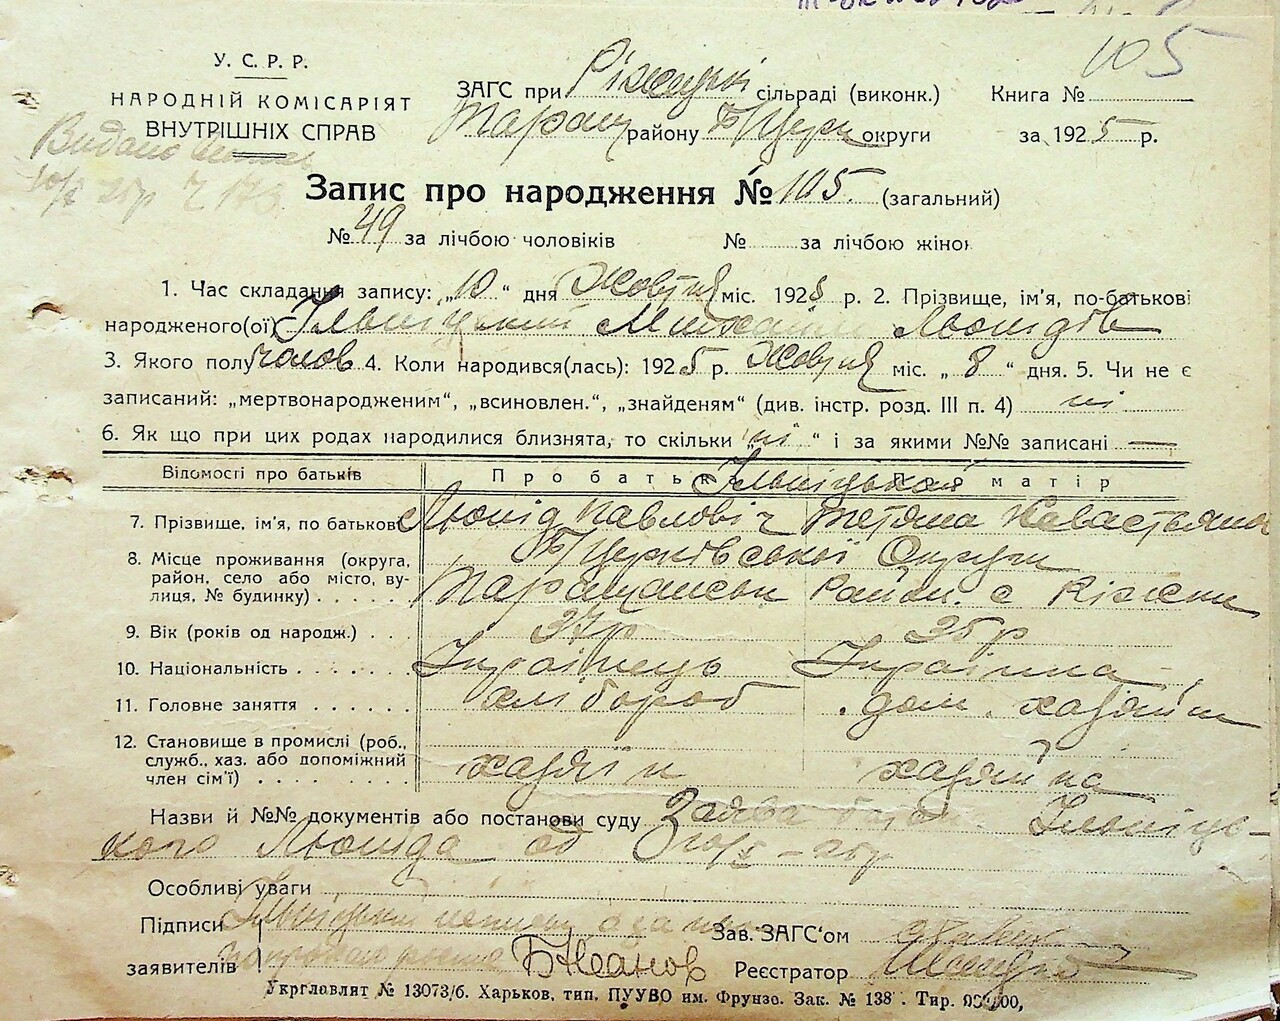 105
У. С. Р. Р.
НАРОДНІЙ КОМІСАРІЯТ
ВНУТРІШНІХ СПРАВ
ЗАГС при сільраді (виконк.)
Таращ району Б Церк округи
Книга №
за 1925 р.
Видано
Запис про народження № 105. (загальний)
№ 49 за лічбою чоловіків № за лічбою жінок
1. Час складання запису: „10“ дня Жовтня міс. 1925 р. 2. Прізвище, ім'я, по-батькові
народженого(ої) Ільніцький Михайло Леонідів
3. Якого полу чолов 4. Коли народився(лась): 1925 р. Жовтня міс. „8“ дня. 5. Чи не є
записаний: „мертвонародженим“, „всиновлен.“, „знайденям“ (див. інстр. розд. III п. 4) ні
6. Як що при цих родах народилися близнята, то скільки „ні“ і за якими №№ записані —
Відомості про батьків Про батька Про матір
Ільніцький
7. Прізвище, ім'я, по батькові Леонід Павловіч Тетяна
8. Місце проживання (округа, Б Церківської Округи
район, село або місто, ву- Таращанськ Район. с Ріжки
лиця, № будинку) . . . . .
9. Вік (років од народж.) . . . 37 р 35 р
10. Національність . . . . . . . Українець Українка
11. Головне заняття . . . . . . хлібороб дом. хазяйка
12. Становище в промислі (роб.,
служб., хаз. або допоміжний
член сім'ї) . . . . . . . . хазяїн хазяйка
Назви й №№ документів або постанови суду Заява батька Ільніць-
кого Леоніда од 10/X – 25р
Особливі уваги
Підписи Ільніцький Зав. ЗАГС'ом
заявителів Реєстратор
Укрглавлит № 13073/б. Харьков, тип. ПУУВО им. Фрунзе. Зак. № 138 . Тир.